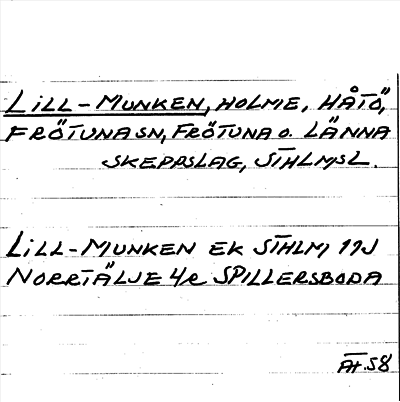 LILL-MUNKEN, HOLME, HÅTÖ,
FRÖTUNA SN, FRÖTUNA O. LÄNNA
SKEPPSLAG, STHLMSL.
LILL-MUNKEN EK STHLM 11J
NORRTÄLJE 4R SPILLERSBODA